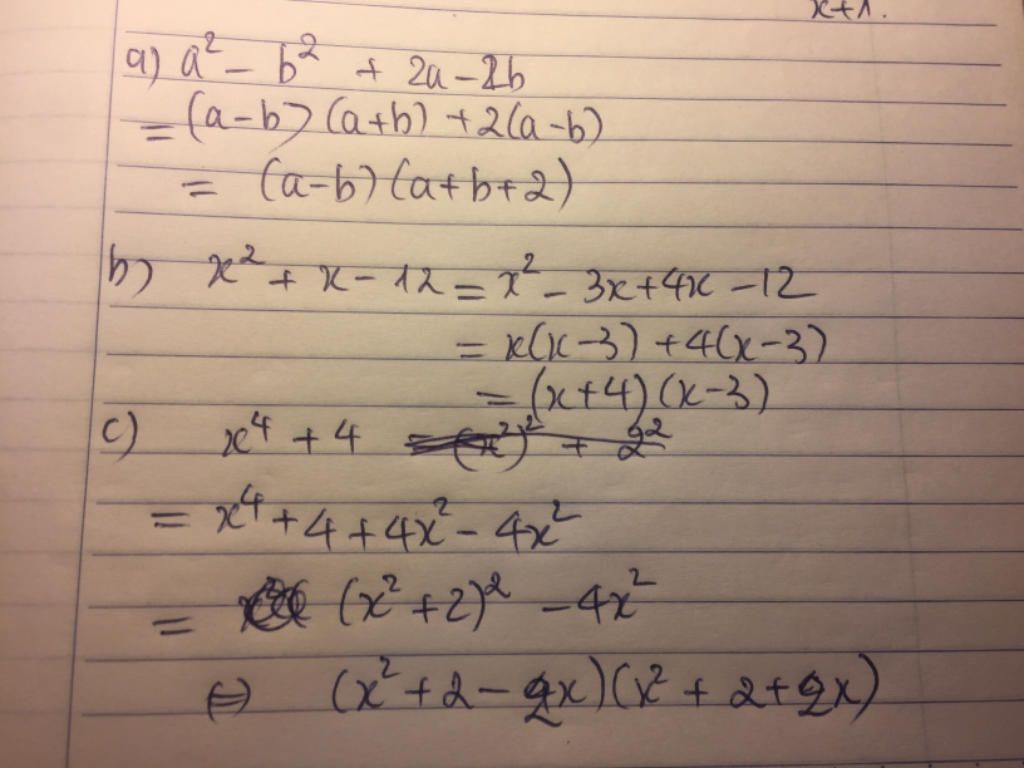 x+1.
a) a² − b² + 2a − 2b
= (a−b)(a+b) + 2(a−b)
= (a−b)(a+b+2)
b) x² + x − 12 = x² − 3x + 4x − 12
= x(x−3) + 4(x−3)
= (x+4)(x−3)
c) x⁴ + 4 = (x²)² + 2²
= x⁴ + 4 + 4x² − 4x²
= (x²+2)² − 4x²
(=) (x² + 2 − 2x)(x² + 2 + 2x)